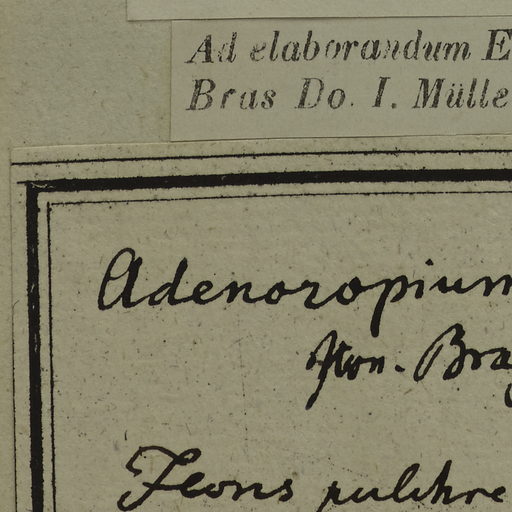 Ad elaborandum E
Bras Do. I. Mülle
Adenoropium
Bra
Icons pulchre